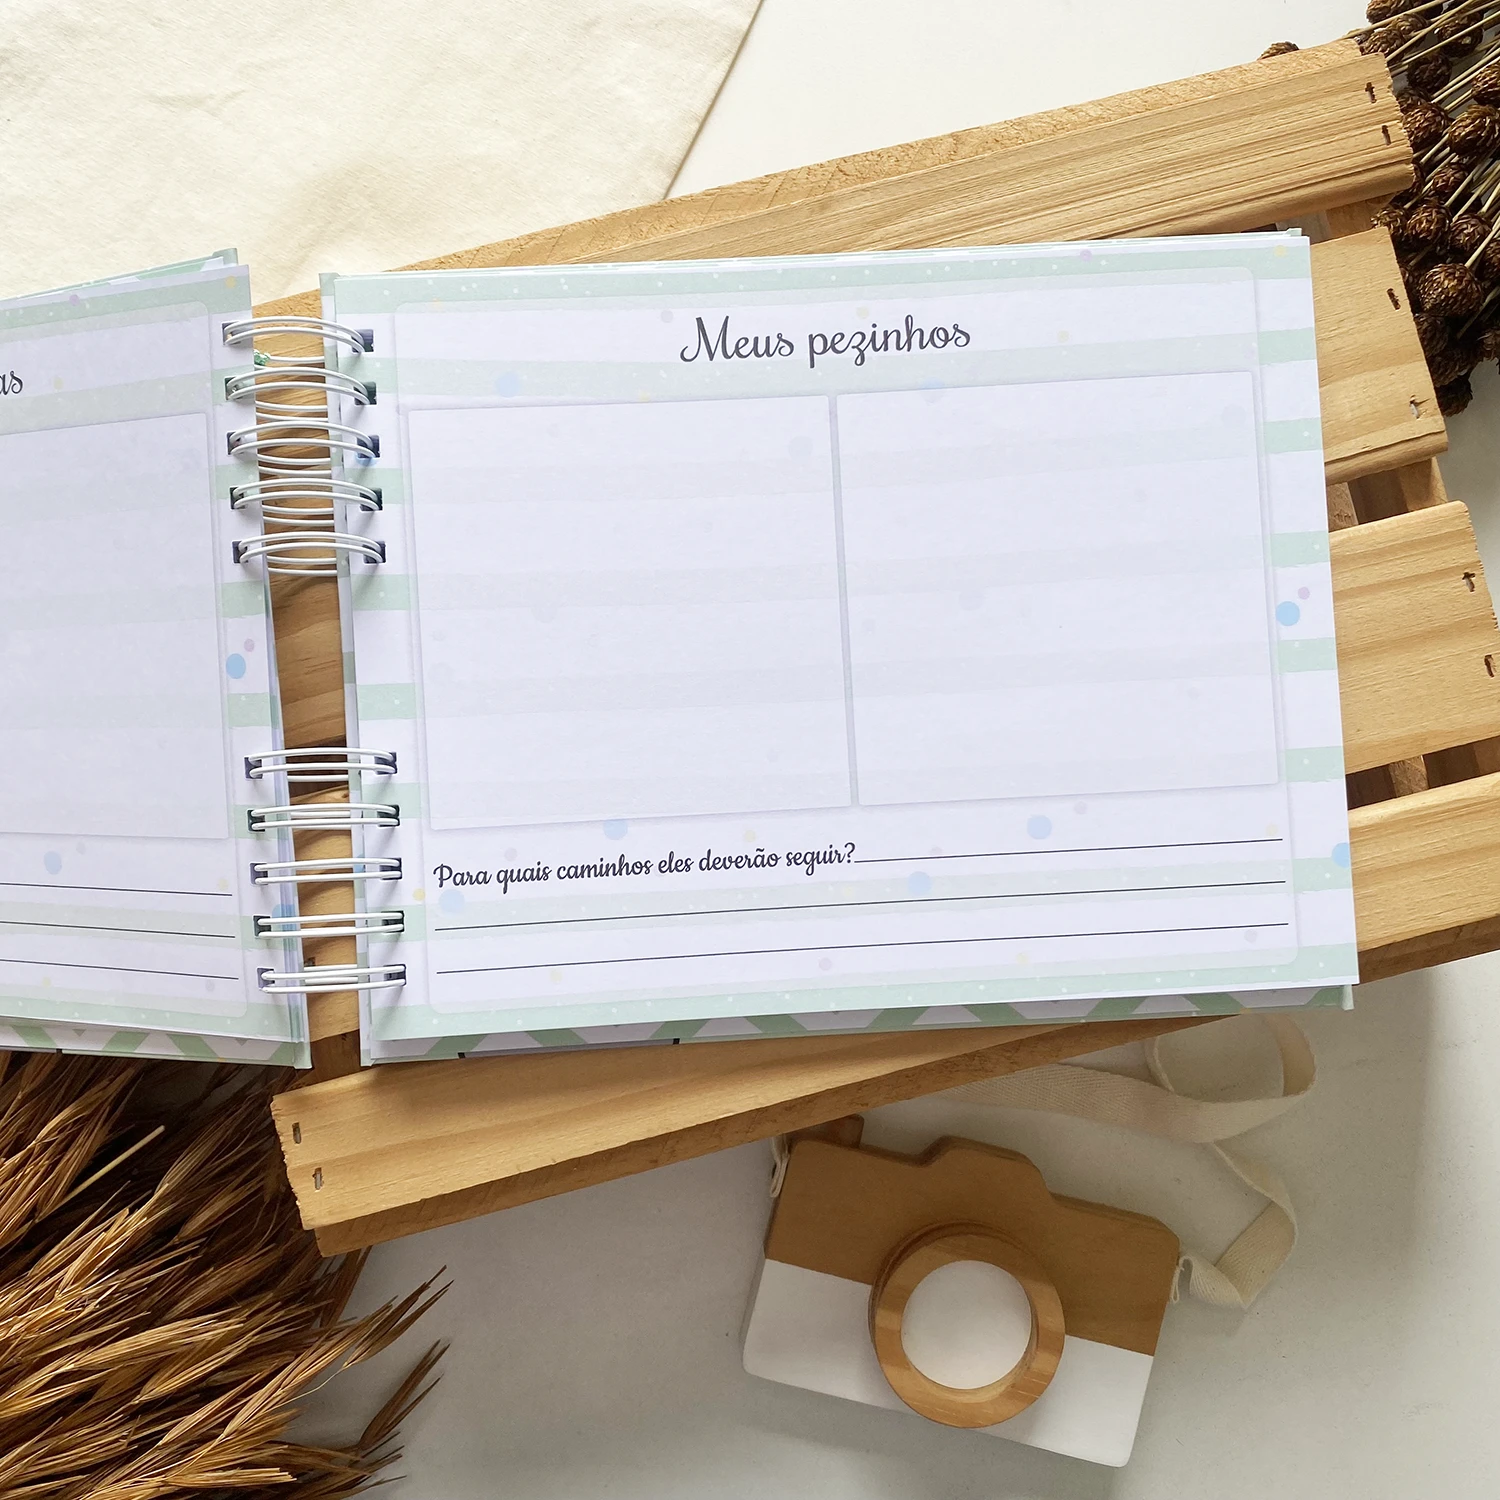 Meus pezinhos
Para quais caminhos eles deverão seguir?